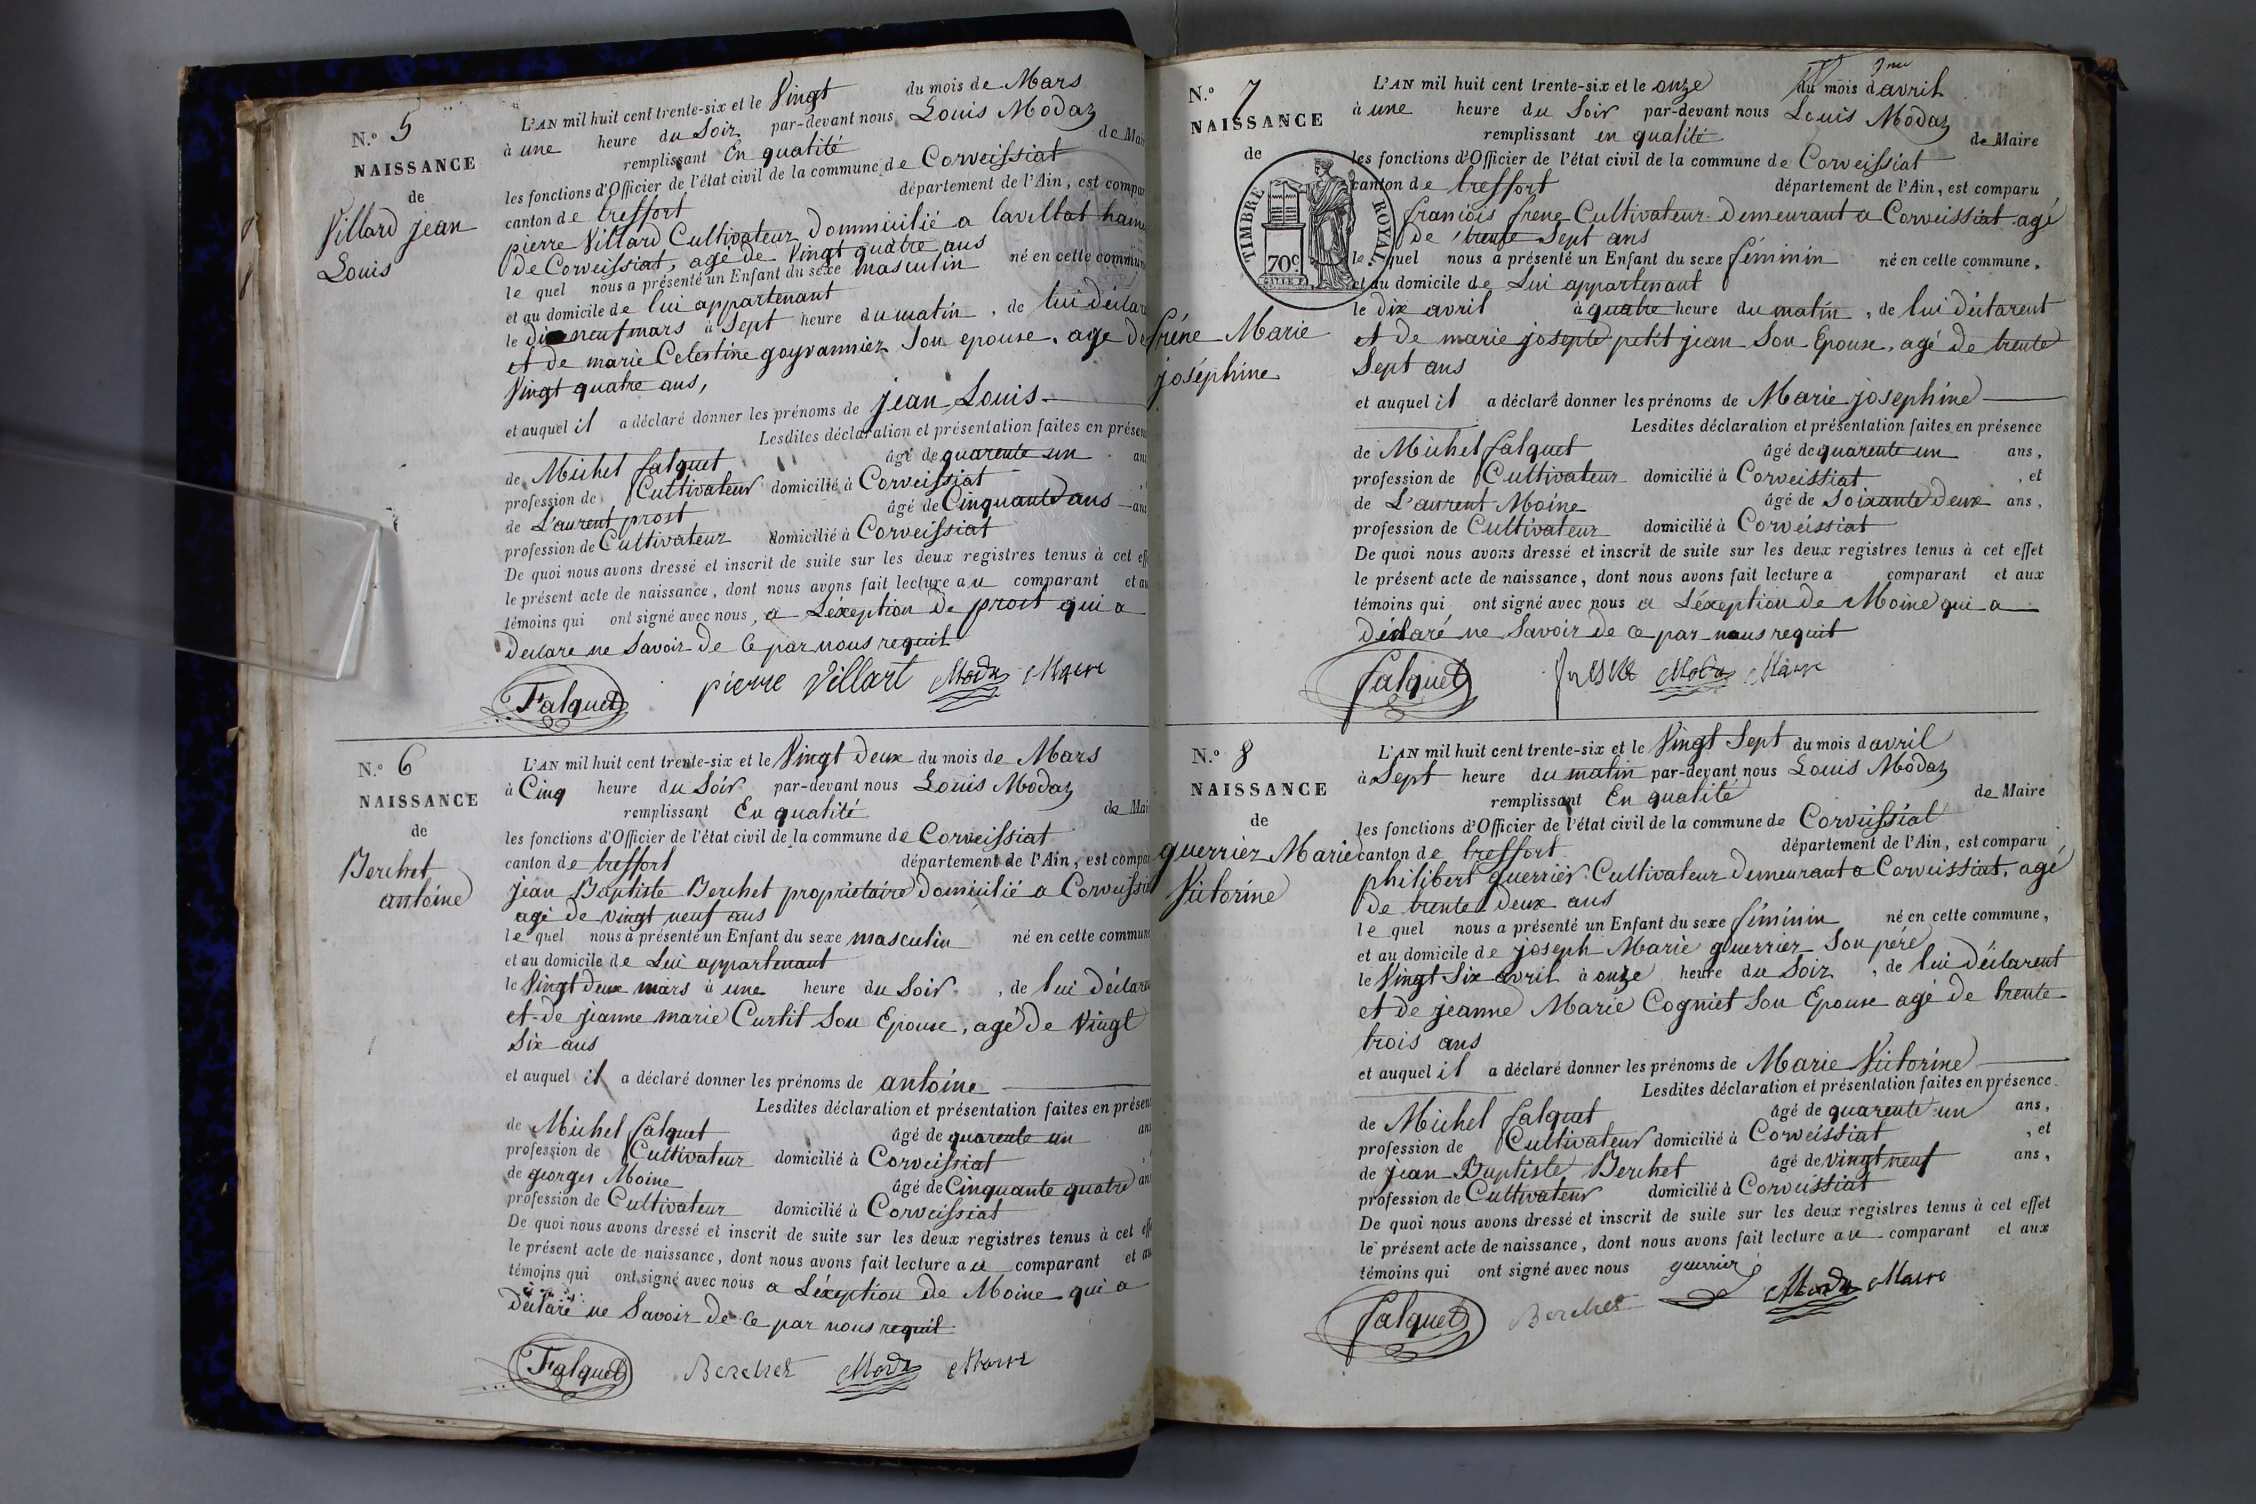 N.º 5
NAISSANCE
de
Villard jean
Louis
L'AN mil huit cent trente-six et le Vingt du mois de Mars
à une heure du Soir par-devant nous Louis Modaz
remplissant En qualité de Mair
les fonctions d'Officier de l'état civil de la commune de Corveissiat
canton de treffort département de l'Ain, est compar
pierre Villard Cultivateur Dommicilié a lavillat hame
De Corveissiat, agé de Vingt quatre ans
le quel nous a présenté un Enfant du sexe masculin né en cette commune
et au domicile de lui appartenant
le dix neuf mars à Sept heure du matin, de lui déclar
et de marie Celestine goyvanniez Son epouse, age de
Vingt quatre ans,
et auquel il a déclaré donner les prénoms de jean Louis
Lesdites déclaration et présentation faites en présen
de Michel falquet âgé de quarente un ans
profession de Cultivateur domicilié à Corveissiat
de L'aurent prost âgé de Cinquante ans ans
profession de Cultivateur domicilié à Corveissiat
De quoi nous avons dressé et inscrit de suite sur les deux registres tenus à cet effe
le présent acte de naissance, dont nous avons fait lecture au comparant et au
témoins qui ont signé avec nous, a L'éxeption de prost qui a
Déclare ne Savoir de Ce par nous requit
Falquet pierre Villart Modas Maire
N.º 6
NAISSANCE
de
Berchet
antoine
L'AN mil huit cent trente-six et le Vingt Deux du mois de Mars
à Cinq heure du Soir par-devant nous Louis Modaz
remplissant En qualité de Mai
les fonctions d'Officier de l'état civil de la commune de Corveissiat
canton de treffort département de l'Ain, est compar
jean Baptiste Berchet proprietaire Domicilié a Corveissia
agé de vingt neuf ans
le quel nous a présenté un Enfant du sexe masculin né en cette commune
et au domicile de Lui appartenant
le Vingt deux mars à une heure du Soir, de lui déclare
et de jeanne marie Curtit Son Epouse, agé de Vingt
Six ans
et auquel il a déclaré donner les prénoms de antoine
Lesdites déclaration et présentation faites en présen
de Michel falquet âgé de quarente un ans
profession de Cultivateur domicilié à Corveissiat
de georges Moine âgé de Cinquante quatre ans
profession de Cultivateur domicilié à Corveissiat
De quoi nous avons dressé et inscrit de suite sur les deux registres tenus à cet eff
le présent acte de naissance, dont nous avons fait lecture au comparant et au
témoins qui ont signé avec nous a L'éxeption de Moine qui a
déclaré ne Savoir de Ce par nous requit
Falquet Berchet Modas Maire
N.º 7
NAISSANCE
de
TIMBRE ROYAL
70c
fréne Marie
joséphine
L'AN mil huit cent trente-six et le onze du mois d'avril
à une heure du Soir par-devant nous Louis Modaz
remplissant en qualité de Maire
les fonctions d'Officier de l'état civil de la commune de Corveissiat
canton de treffort département de l'Ain, est comparu
franiois frene Cultivateur Demeurant a Corveissiat agé
de trente Sept ans
le quel nous a présenté un Enfant du sexe féminin né en cette commune,
et au domicile de Lui appartenant
le dix avril à quatre heure du matin, de lui déclarent
et de marie josepte petit jean Son Epouse, agé de trente
Sept ans
et auquel il a déclaré donner les prénoms de Marie josephine
Lesdites déclaration et présentation faites en présence
de Michel falquet âgé de quarente un ans,
profession de Cultivateur domicilié à Corveissiat, et
de L'aurent Moine âgé de Soixante Deux ans,
profession de Cultivateur domicilié à Corveissiat
De quoi nous avons dressé et inscrit de suite sur les deux registres tenus à cet effet
le présent acte de naissance, dont nous avons fait lecture a comparant et aux
témoins qui ont signé avec nous a L'éxeption de Moine qui a
Déclaré ne Savoir de Ce par nous requit
falquet Modas Maire
N.º 8
NAISSANCE
de
guerriez Marie
Victorine
L'AN mil huit cent trente-six et le Vingt Sept du mois d'avril
à Sept heure du matin par-devant nous Louis Modaz
remplissant En qualité de Maire
les fonctions d'Officier de l'état civil de la commune de Corveissiat
canton de treffort département de l'Ain, est comparu
philibert guerrier Cultivateur Demeurant a Corveissiat, agé
De trente Deux ans
le quel nous a présenté un Enfant du sexe féminin né en cette commune,
et au domicile de joseph Marie guerrier Son pére
le Vingt Six avril à onze heure du Soir, de lui déclarent
et de jeanne Marie Cogniet Son Epouse agé de trente
trois ans
et auquel il a déclaré donner les prénoms de Marie Victorine
Lesdites déclaration et présentation faites en présence
de Michel falquet âgé de quarente un ans,
profession de Cultivateur domicilié à Corveissiat, et
de jean Baptiste Berchet âgé de vingt neuf ans,
profession de Cultivateur domicilié à Corveissiat
De quoi nous avons dressé et inscrit de suite sur les deux registres tenus à cet effet
le présent acte de naissance, dont nous avons fait lecture au comparant et aux
témoins qui ont signé avec nous guerrier
falquet Berchet Modas Maire